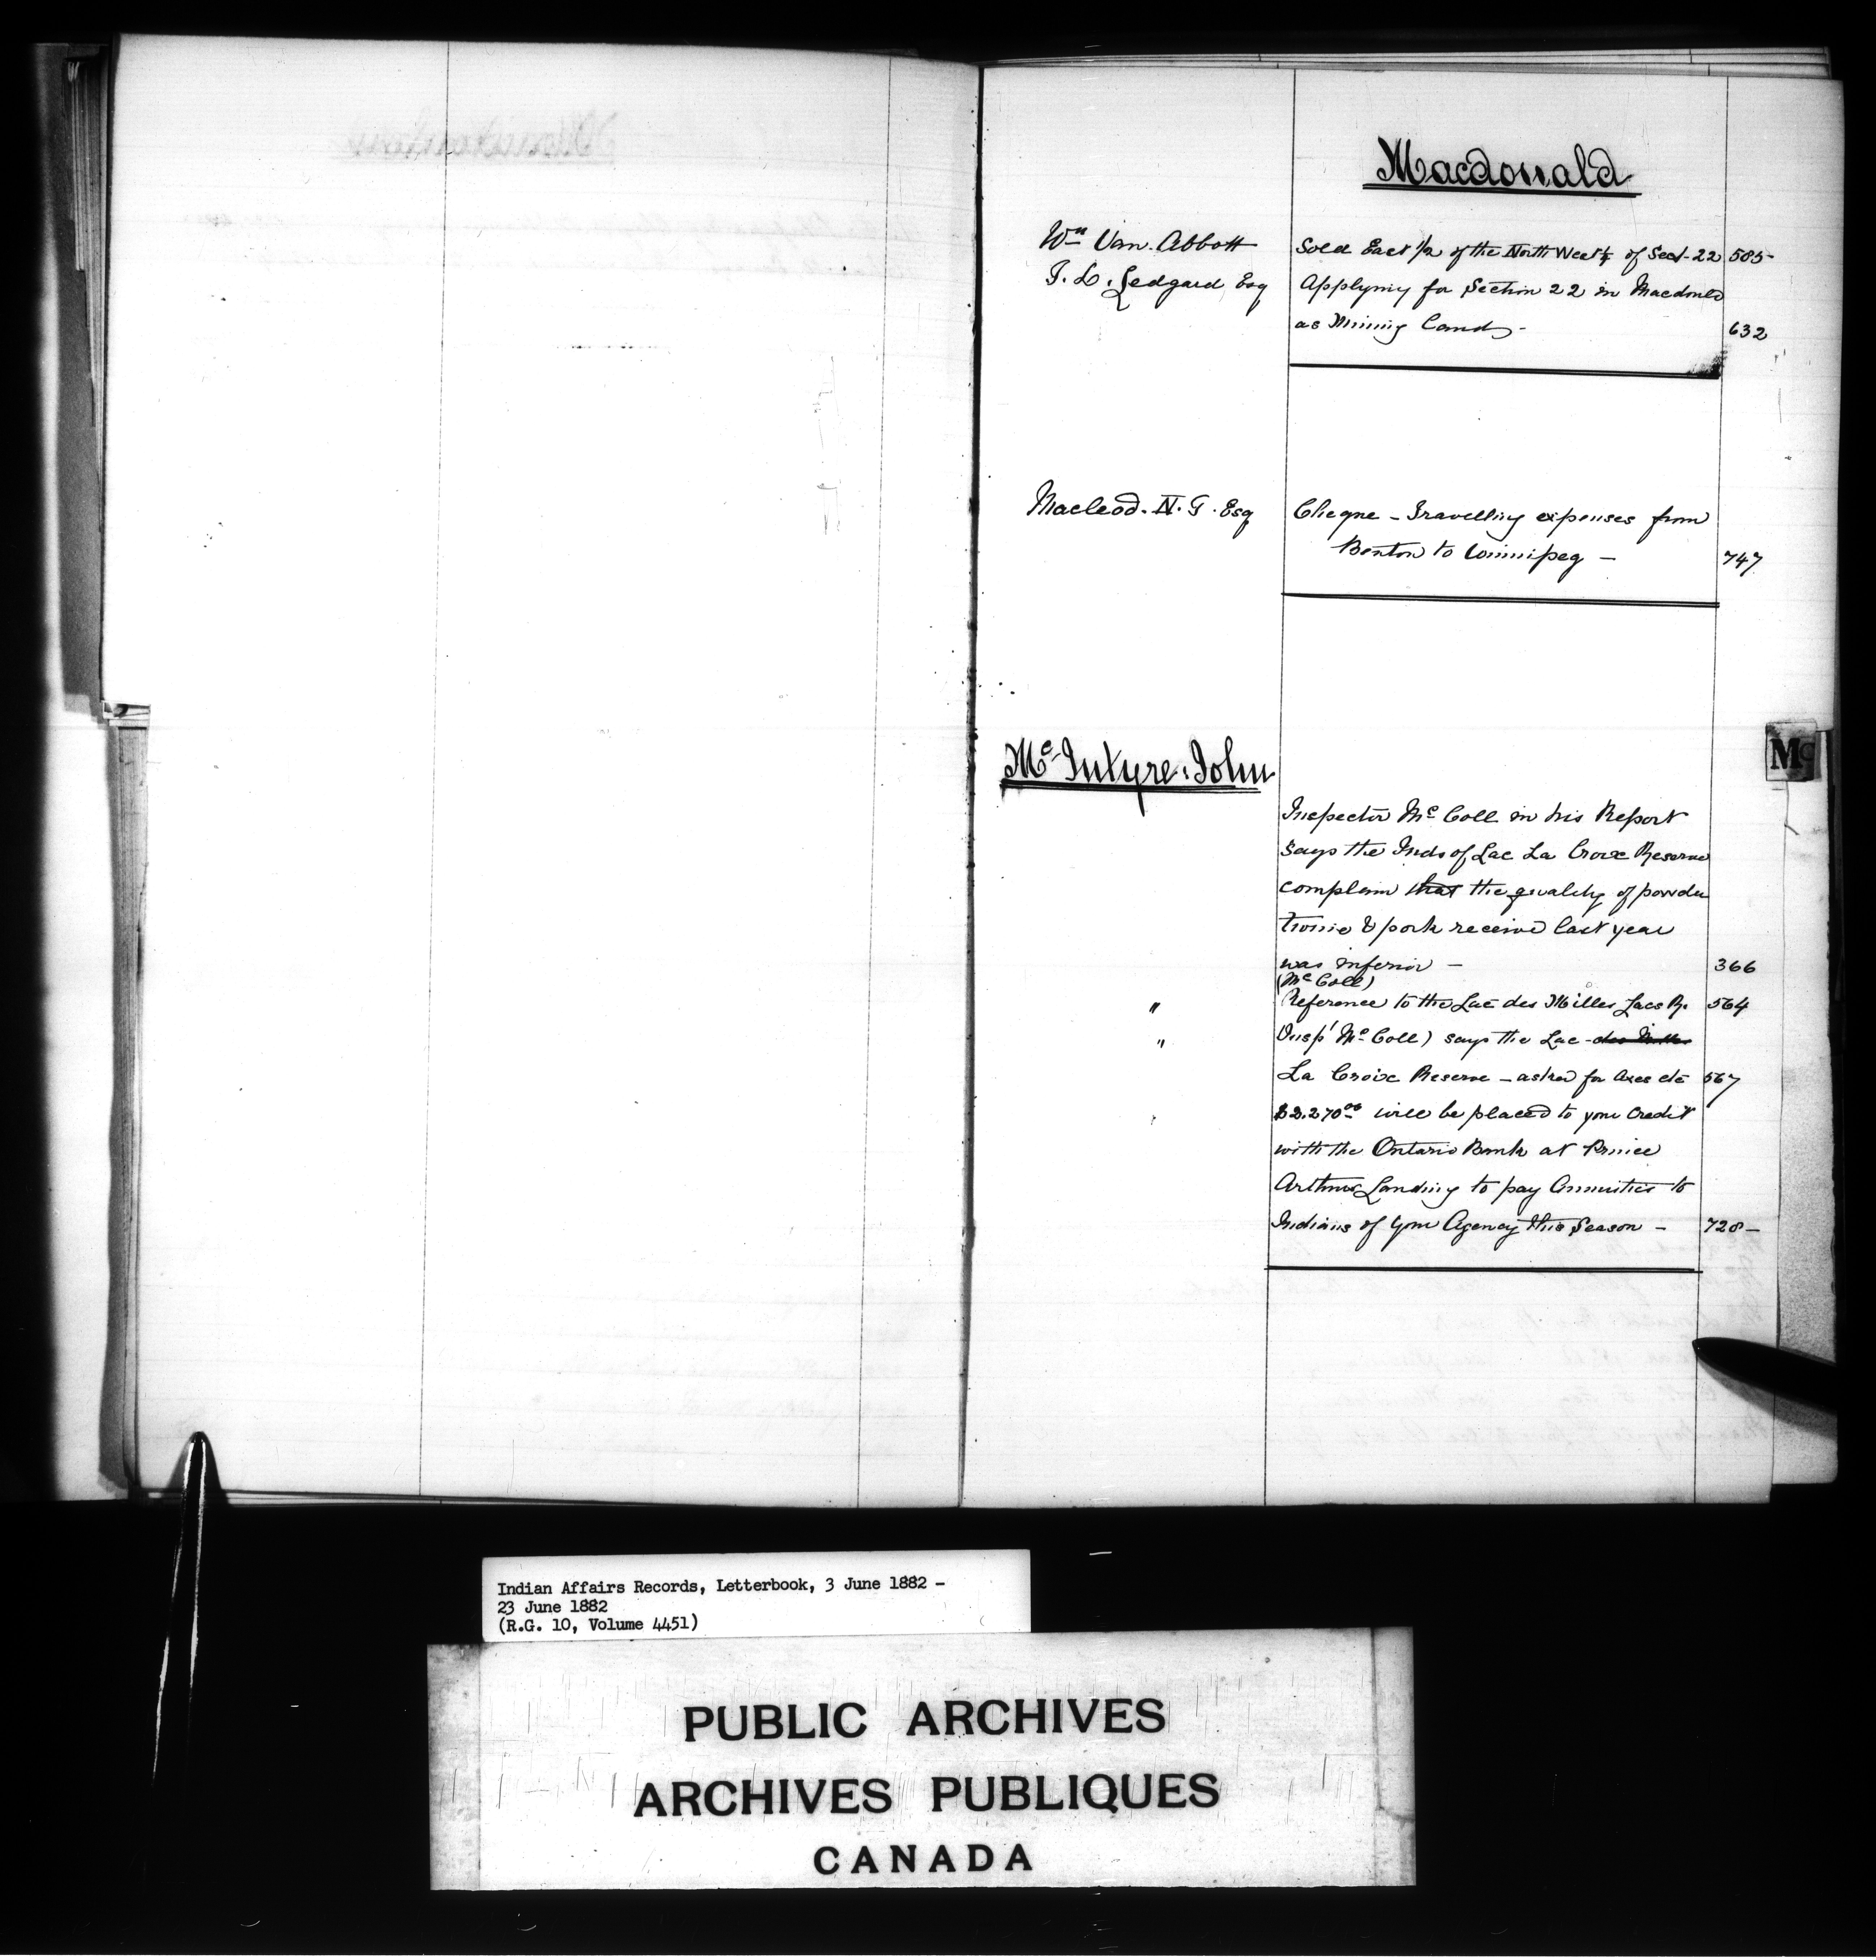 Macdonald
Wm Van. Abbott Sold East 1/2 of the North West 1/4 of Sect-22 585-
T. L. Ledgard Esq Applying for Section 22 in Macdonld
as Mining Land - 632
Macleod. N. T. Esq Cheque - Travelling expenses from
Benton to Winnipeg - 747
Mc Intyre. John
Mc
Inspector Mc Coll in his Report
says the Inds of Lac La Croix Reserve
complain that the quality of powder
twine & pork receive last year
was inferior - 366
(Mc Coll)
" Reference to the Lac des Milles Lacs R. 564
" Insp' Mc Coll) says the Lac - des Milles
La Croix Reserve - asked for Axes etc 567
$2.270 00 will be placed to your Credit
with the Ontario Bank at Prince
Arthurs Landing to pay Annuities to
Indians of your Agency this Season - 728-
Indian Affairs Records, Letterbook, 3 June 1882 -
23 June 1882
(R.G. 10, Volume 4451)
PUBLIC ARCHIVES
ARCHIVES PUBLIQUES
CANADA